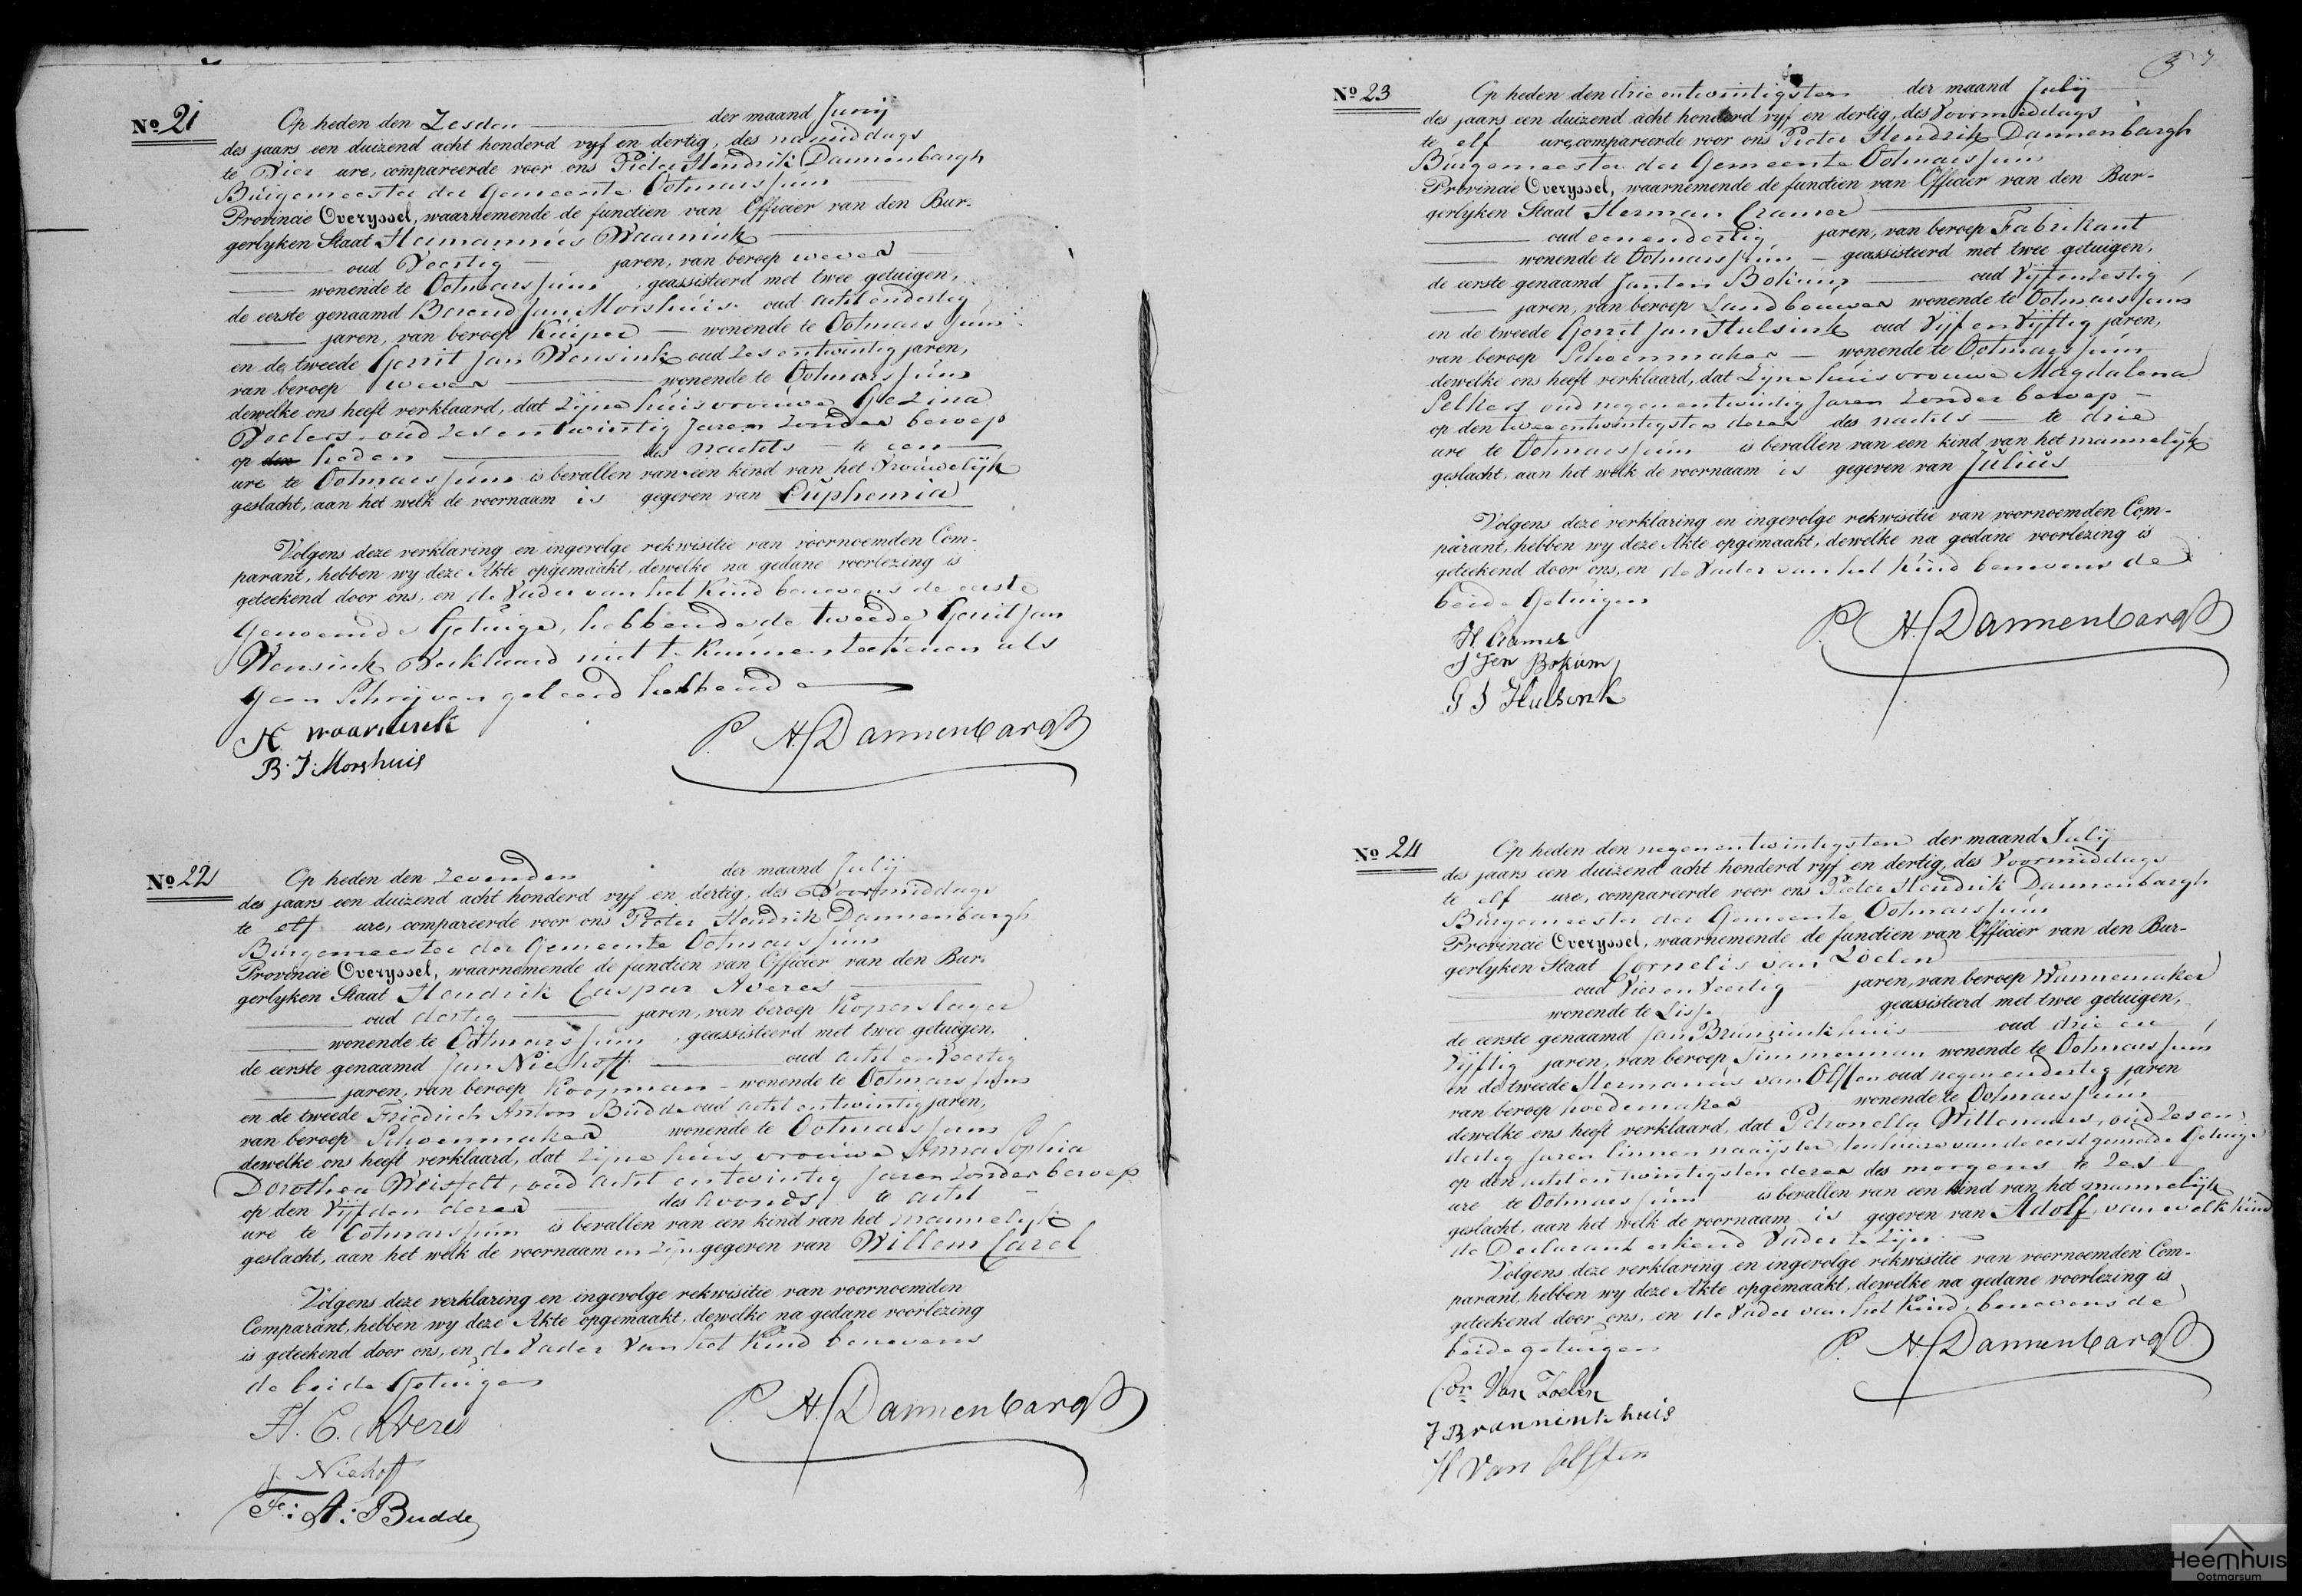 No 21
Op heden den Zesden der maand Junij
des jaars een duizend acht honderd vyf en dertig, des namiddags
te Vier ure, compareerde voor ons Pieter Hendrik Dannenbargh
Burgemeester der Gemeente Ootmarssum
Provincie Overyssel, waarnemende de functien van Officier van den Bur-
gerlyken Staat Hermannus Waarnink
oud Veertig jaren, van beroep wever
wonende te Ootmarssum, geassisteerd met twee getuigen,
de eerste genaamd Berend Jan Morshuis oud acht endertig
jaren, van beroep Kuiper wonende te Ootmarssum
en de tweede Gerrit Jan Wensink oud zes entwintig jaren,
van beroep wever wonende te Ootmarssum
dewelke ons heeft verklaard, dat Zijne huisvrouwe Gezina
oud zes entwintig Jaren zonder beroep
op den heden des nachts te een
ure te Ootmarssum is bevallen van een kind van het Vrouwelijk
geslacht, aan het welk de voornaam is gegeven van Euphemia
Volgens deze verklaring en ingevolge rekwisitie van voornoemden Com-
parant, hebben wy deze Akte opgemaakt, dewelke na gedane voorlezing is
geteekend door ons, en de Vader van het Kind benevens de eerste
Genoemde Getuige, hebbende de tweede Gerrit Jan
Wensink Verklaard niet te Kunnen teekenen als
Geen Schrijven geleerd hebbende
H waarnink
B. J: Morshuis
P. H. Dannenbargh
No 22
Op heden den Zevenden der maand Julij
des jaars een duizend acht honderd vyf en dertig, des Voormiddags
te elf ure, compareerde voor ons Pieter Hendrik Dannenbargh
Burgemeester der Gemeente Ootmarssum
Provincie Overyssel, waarnemende de functien van Officier van den Bur-
gerlyken Staat Hendrik Caspar Averes
oud dertig jaren, van beroep Koperslager
wonende te Ootmarssum, geassisteerd met twee getuigen,
de eerste genaamd Jan Niehoff oud acht enVeertig
jaren, van beroep Koopman wonende te Ootmarssum
en de tweede Friedrich Anton Budde oud acht entwintig jaren,
van beroep Schoenmaker wonende te Ootmarssum
dewelke ons heeft verklaard, dat Zijne huisvrouwe Anna Sophia
Dorothea oud acht entwintig Jaren zonder beroep
op den Vijfden dezer des avonds te acht
ure te Ootmarssum is bevallen van een kind van het mannelijk
geslacht, aan het welk de voornaamen zijn gegeven van Willem Carel
Volgens deze verklaring en ingevolge rekwisitie van voornoemden
Comparant, hebben wy deze Akte opgemaakt, dewelke na gedane voorlezing
is geteekend door ons, en de Vader Van het Kind benevens
de beide Getuigen
H. C. Averes
J. Niehoff
Fr: A: Budde
P. H. Dannenbargh
No 23
Op heden den drie entwintigsten der maand Julij
des jaars een duizend acht honderd vyf en dertig, des Voormiddags
te elf ure, compareerde voor ons Pieter Hendrik Dannenbargh
Burgemeester der Gemeente Ootmarssum
Provincie Overyssel, waarnemende de functien van Officier van den Bur-
gerlyken Staat Herman Cramer
oud eenendertig jaren, van beroep Fabrikant
wonende te Ootmarssum geassisteerd met twee getuigen,
de eerste genaamd Jan ten Bokum oud Vijfenzestig
jaren, van beroep Landbouwer wonende te Ootmarssum
en de tweede Gerrit Jan Hulsink oud Vijf en Vijftig jaren,
van beroep Schoenmaker wonende te Ootmarssum
dewelke ons heeft verklaard, dat Zijne huisvrouwe Magdalena
Selkers oud negenentwintig Jaren zonder beroep
op den tweeentwintigsten dezer des nachts te drie
ure te Ootmarssum is bevallen van een kind van het mannelijk
geslacht, aan het welk de voornaam is gegeven van Julius
Volgens deze verklaring en ingevolge rekwisitie van voornoemden Com-
parant, hebben wy deze Akte opgemaakt, dewelke na gedane voorlezing is
geteekend door ons, en de Vader van het Kind benevens de
beide Getuigen
H Cramer
J Ten Bokum
G J Hulsink
P. H. Dannenbargh
No 24
Op heden den negenentwintigsten der maand Julij
des jaars een duizend acht honderd vyf en dertig, des Voormiddags
te elf ure, compareerde voor ons Pieter Hendrik Dannenbargh
Burgemeester der Gemeente Ootmarssum
Provincie Overyssel, waarnemende de functien van Officier van den Bur-
gerlyken Staat Cornelis van Zoelen
oud Vier en Veertig jaren, van beroep Wannemaker
wonende te Lisse geassisteerd met twee getuigen,
de eerste genaamd Jan Brunninkhuis oud drie en
Vijftig jaren, van beroep Timmerman wonende te Ootmarssum
en de tweede Hermannus van Olffen oud negenendertig jaren
van beroep hoedemaker wonende te Ootmarssum
dewelke ons heeft verklaard, dat Petronella Willenaars, oud zesen
dertig Jaren linnen naaijster ten huize van de eerstgemelde Getuige
op den acht entwintigsten dezer des morgens te zes
ure te Ootmarssum is bevallen van een kind van het mannelijk
geslacht, aan het welk de voornaam is gegeven van Adolf, van welk kind
de Declarant erkend Vader te zijn
Volgens deze verklaring en ingevolge rekwisitie van voornoemden Com-
parant, hebben wy deze Akte opgemaakt, dewelke na gedane voorlezing is
geteekend door ons, en de Vader van het Kind, benevens de
beide getuigen
Cor Van Zoelen
J Brunninkhuis
H Van Olffen
P. H. Dannenbargh
Heemhuis
Ootmarsum